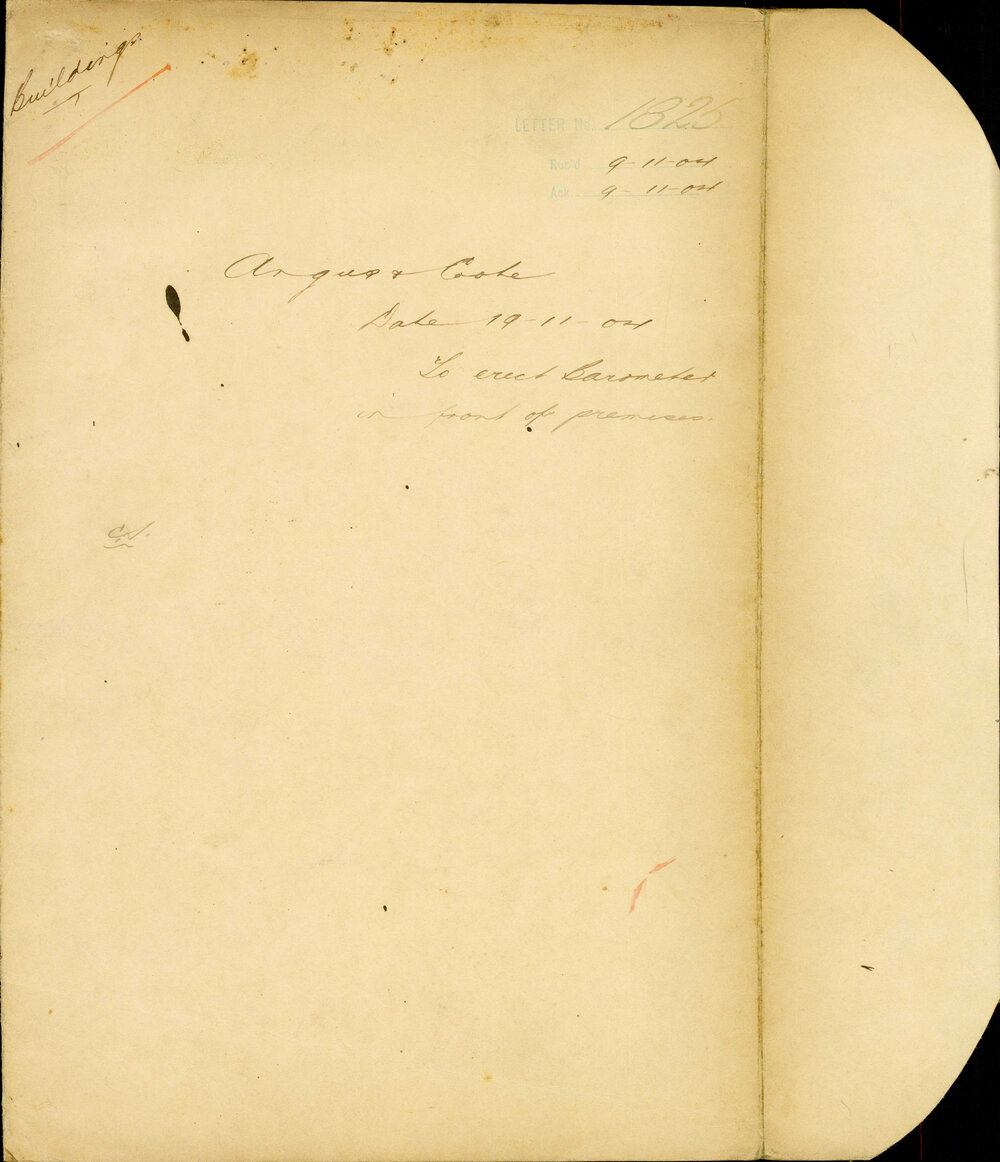 Buildings
LETTER No. 1825
Rec'd 9-11-04
Ack. 9-11-04
Angus & Coote
Date 19-11-04
To erect Barometer
in front of premises.